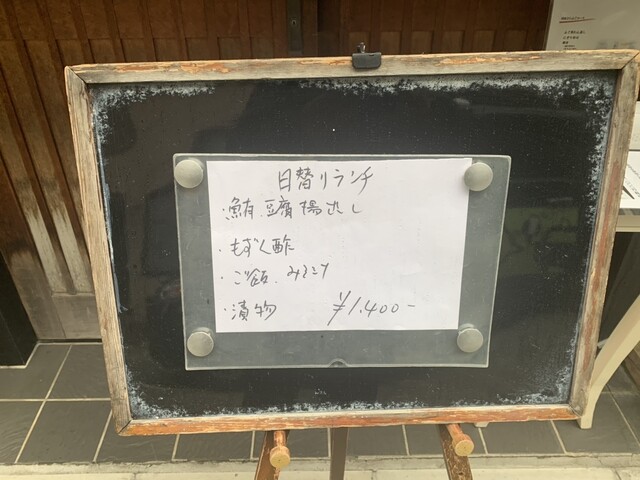 日替りランチ
・鮪、豆腐揚出し
・もずく酢
・ご飯、みそ汁
・漬物 ¥1.400-